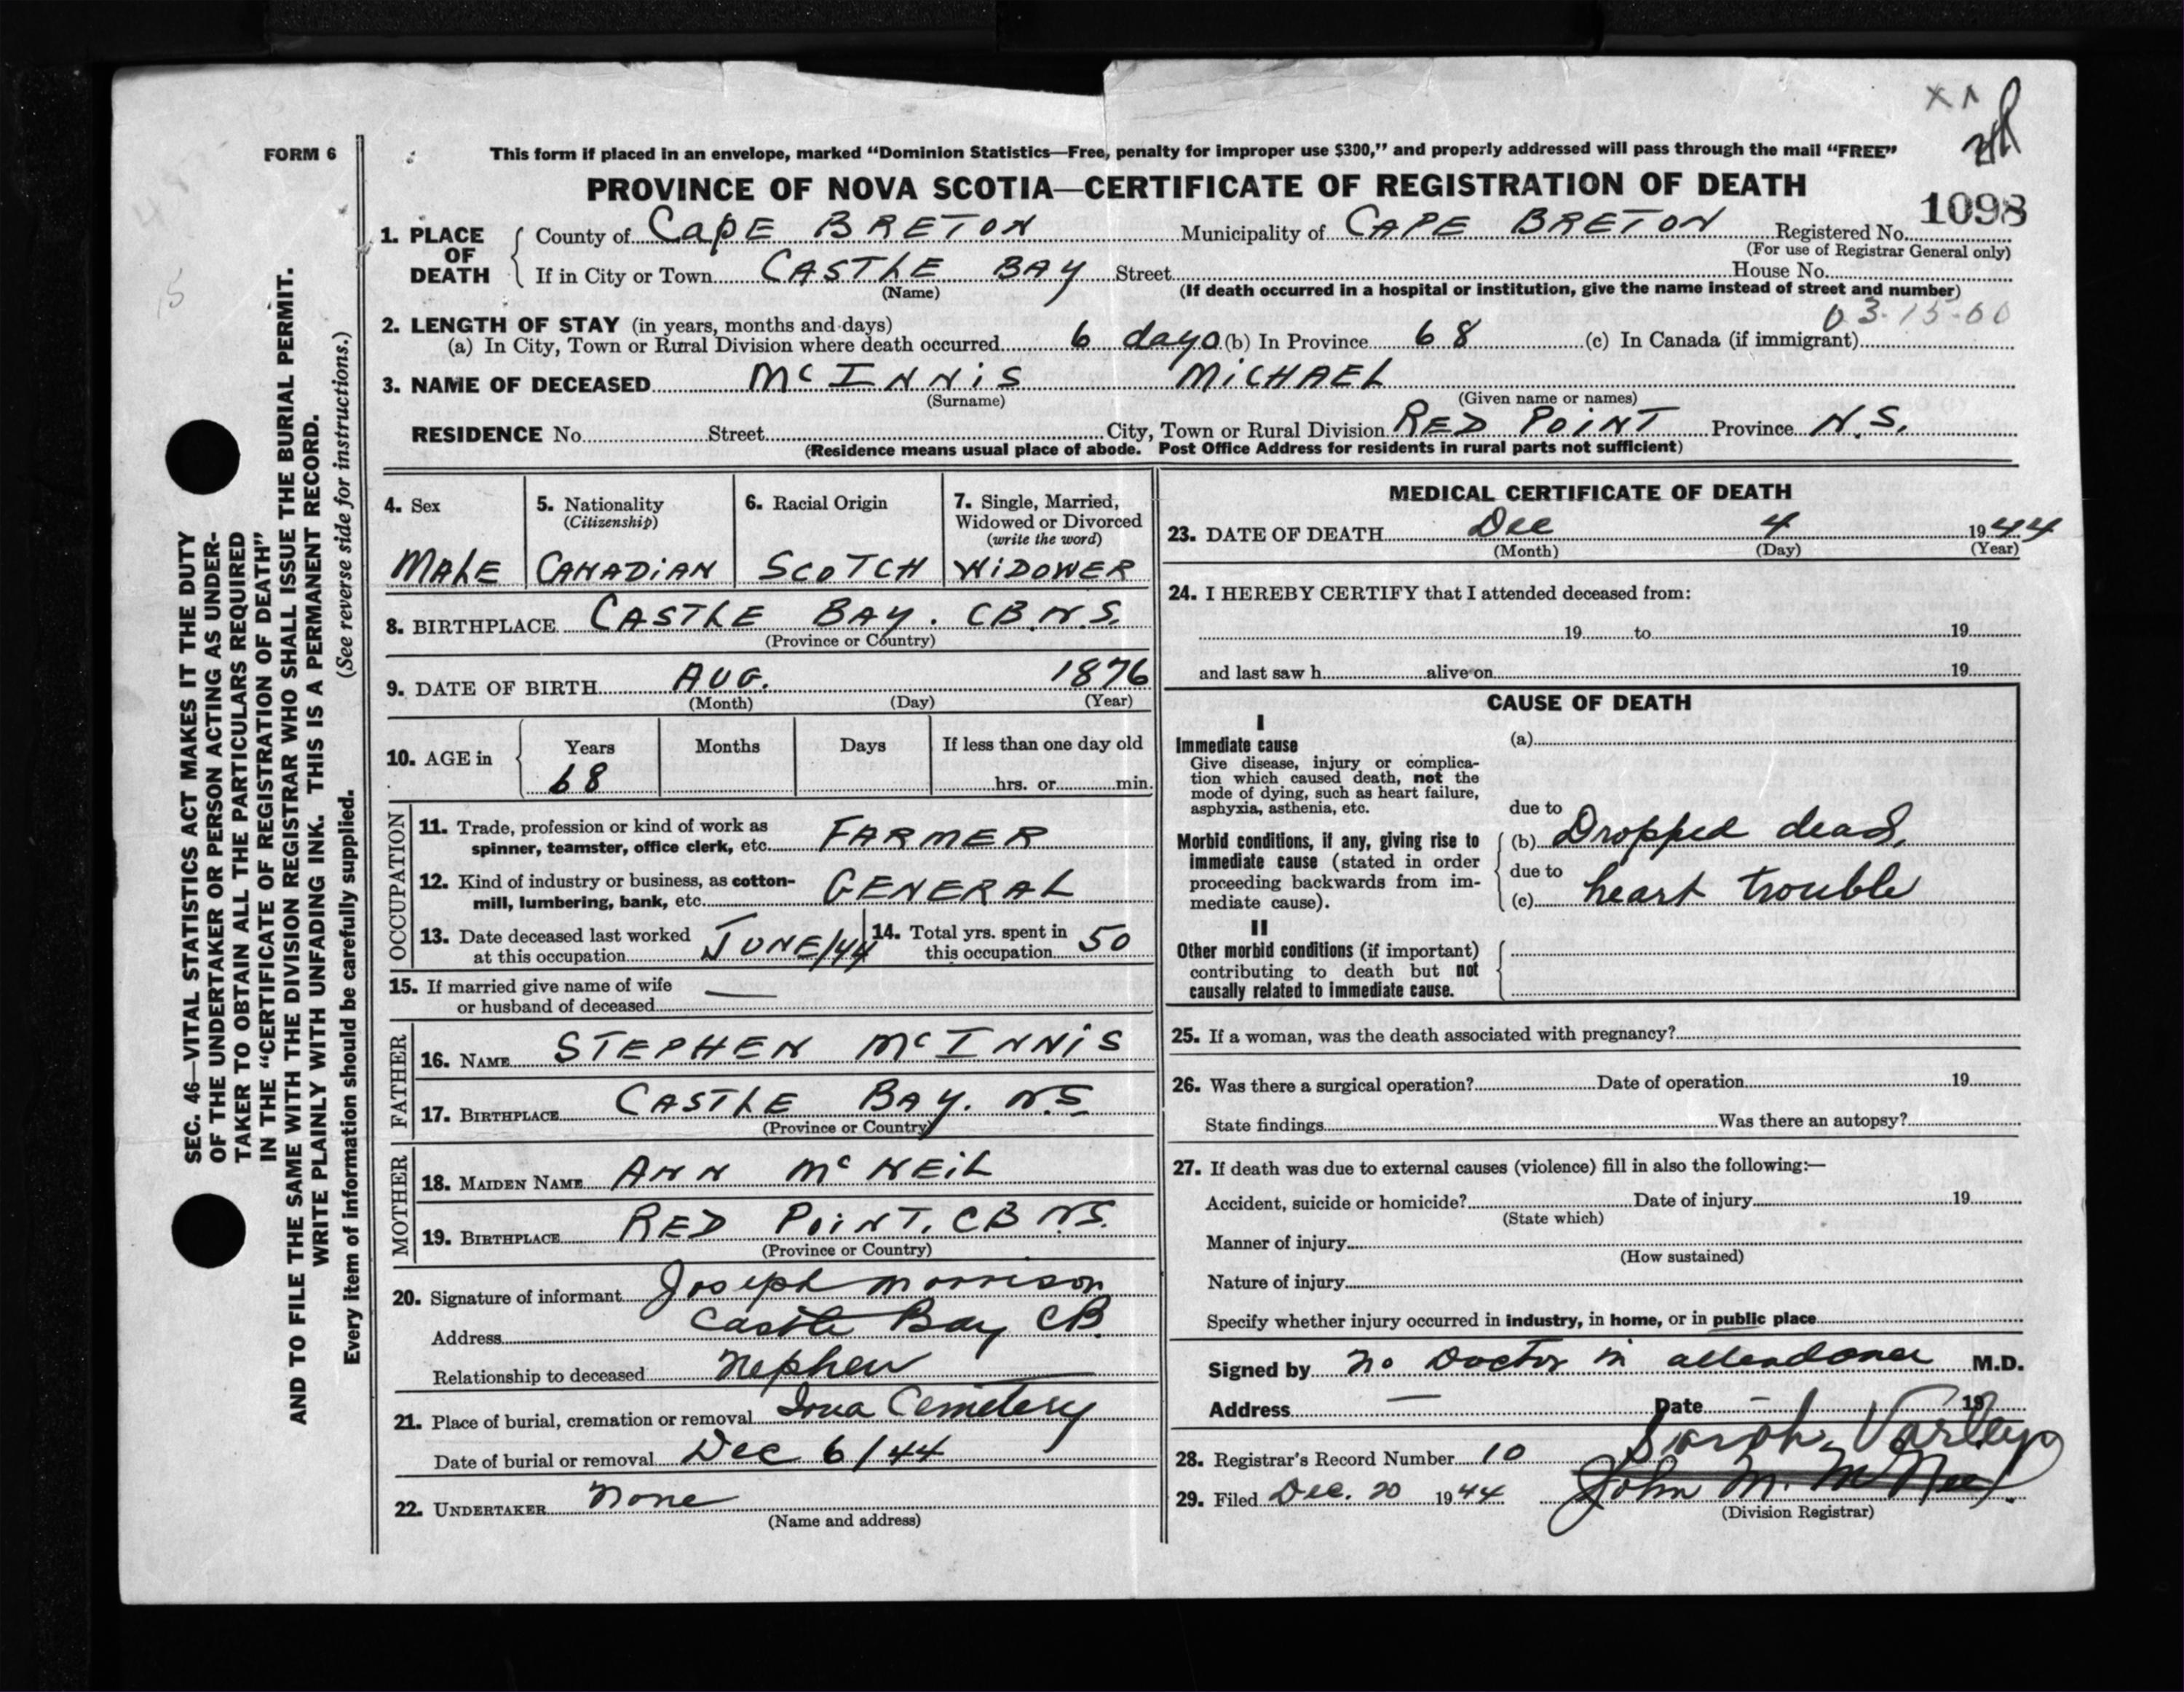 FORM 6
This form if placed in an envelope, marked “Dominion Statistics—Free, penalty for improper use $300,” and properly addressed will pass through the mail “FREE”
PROVINCE OF NOVA SCOTIA—CERTIFICATE OF REGISTRATION OF DEATH
1098
1. PLACE OF DEATH
County of CAPE BRETON Municipality of CAPE BRETON Registered No.
(For use of Registrar General only)
If in City or Town CASTLE BAY Street House No.
(Name) (If death occurred in a hospital or institution, give the name instead of street and number)
03-15-00
2. LENGTH OF STAY (in years, months and days)
(a) In City, Town or Rural Division where death occurred 6 days (b) In Province 68 (c) In Canada (if immigrant)
3. NAME OF DECEASED McINNiS MiCHAEL
(Surname) (Given name or names)
RESIDENCE No. Street City, Town or Rural Division RED POiNT Province N.S.
(Residence means usual place of abode. Post Office Address for residents in rural parts not sufficient)
4. Sex
MALE
5. Nationality
(Citizenship)
CANADiAN
6. Racial Origin
SCOTCH
7. Single, Married,
Widowed or Divorced
(write the word)
WiDOWER
8. BIRTHPLACE CASTLE BAY. CB.N.S.
(Province or Country)
9. DATE OF BIRTH AUG. 1876
(Month) (Day) (Year)
10. AGE in Years Months Days If less than one day old
68 hrs. or min.
OCCUPATION
11. Trade, profession or kind of work as
spinner, teamster, office clerk, etc. FARMER
12. Kind of industry or business, as cotton-
mill, lumbering, bank, etc. GENERAL
13. Date deceased last worked
at this occupation JUNE/44
14. Total yrs. spent in
this occupation 50
15. If married give name of wife
or husband of deceased —
FATHER
16. NAME STEPHEN McINNiS
17. BIRTHPLACE CASTLE BAY. N.S
(Province or Country)
MOTHER
18. MAIDEN NAME ANN McNEiL
19. BIRTHPLACE RED POiNT. CB N.S.
(Province or Country)
20. Signature of informant Joseph Morrison
Address Castle Bay CB
Relationship to deceased Nephew
21. Place of burial, cremation or removal Iona Cemetery
Date of burial or removal Dec 6/44
22. UNDERTAKER None
(Name and address)
MEDICAL CERTIFICATE OF DEATH
23. DATE OF DEATH Dec 4 1944
(Month) (Day) (Year)
24. I HEREBY CERTIFY that I attended deceased from:
19 to 19
and last saw h alive on 19
CAUSE OF DEATH
I
Immediate cause (a)
Give disease, injury or complica-
tion which caused death, not the
mode of dying, such as heart failure,
asphyxia, asthenia, etc. due to
Morbid conditions, if any, giving rise to (b) Dropped dead,
immediate cause (stated in order
proceeding backwards from im- due to
mediate cause). (c) heart trouble
II
Other morbid conditions (if important)
contributing to death but not
causally related to immediate cause.
25. If a woman, was the death associated with pregnancy?
26. Was there a surgical operation? Date of operation 19
State findings Was there an autopsy?
27. If death was due to external causes (violence) fill in also the following:—
Accident, suicide or homicide? Date of injury 19
(State which)
Manner of injury
(How sustained)
Nature of injury
Specify whether injury occurred in industry, in home, or in public place
Signed by No Doctor in attendance M.D.
Address — Date — 19
28. Registrar's Record Number 10 Sarah Varley
29. Filed Dec. 20 1944 John M. McNeil
(Division Registrar)
SEC. 46—VITAL STATISTICS ACT MAKES IT THE DUTY
OF THE UNDERTAKER OR PERSON ACTING AS UNDER-
TAKER TO OBTAIN ALL THE PARTICULARS REQUIRED
IN THE “CERTIFICATE OF REGISTRATION OF DEATH”
AND TO FILE THE SAME WITH THE DIVISION REGISTRAR WHO SHALL ISSUE THE BURIAL PERMIT.
WRITE PLAINLY WITH UNFADING INK. THIS IS A PERMANENT RECORD.
Every item of information should be carefully supplied. (See reverse side for instructions.)